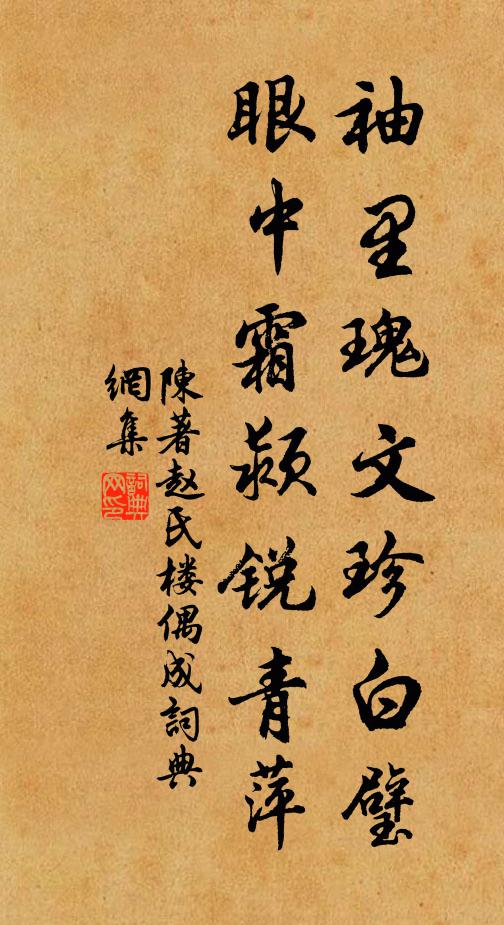 袖里瑰文珍白璧
眼中霜颖锐青萍
陳著赵氏楼偶成詞典
網集
詞典
网印